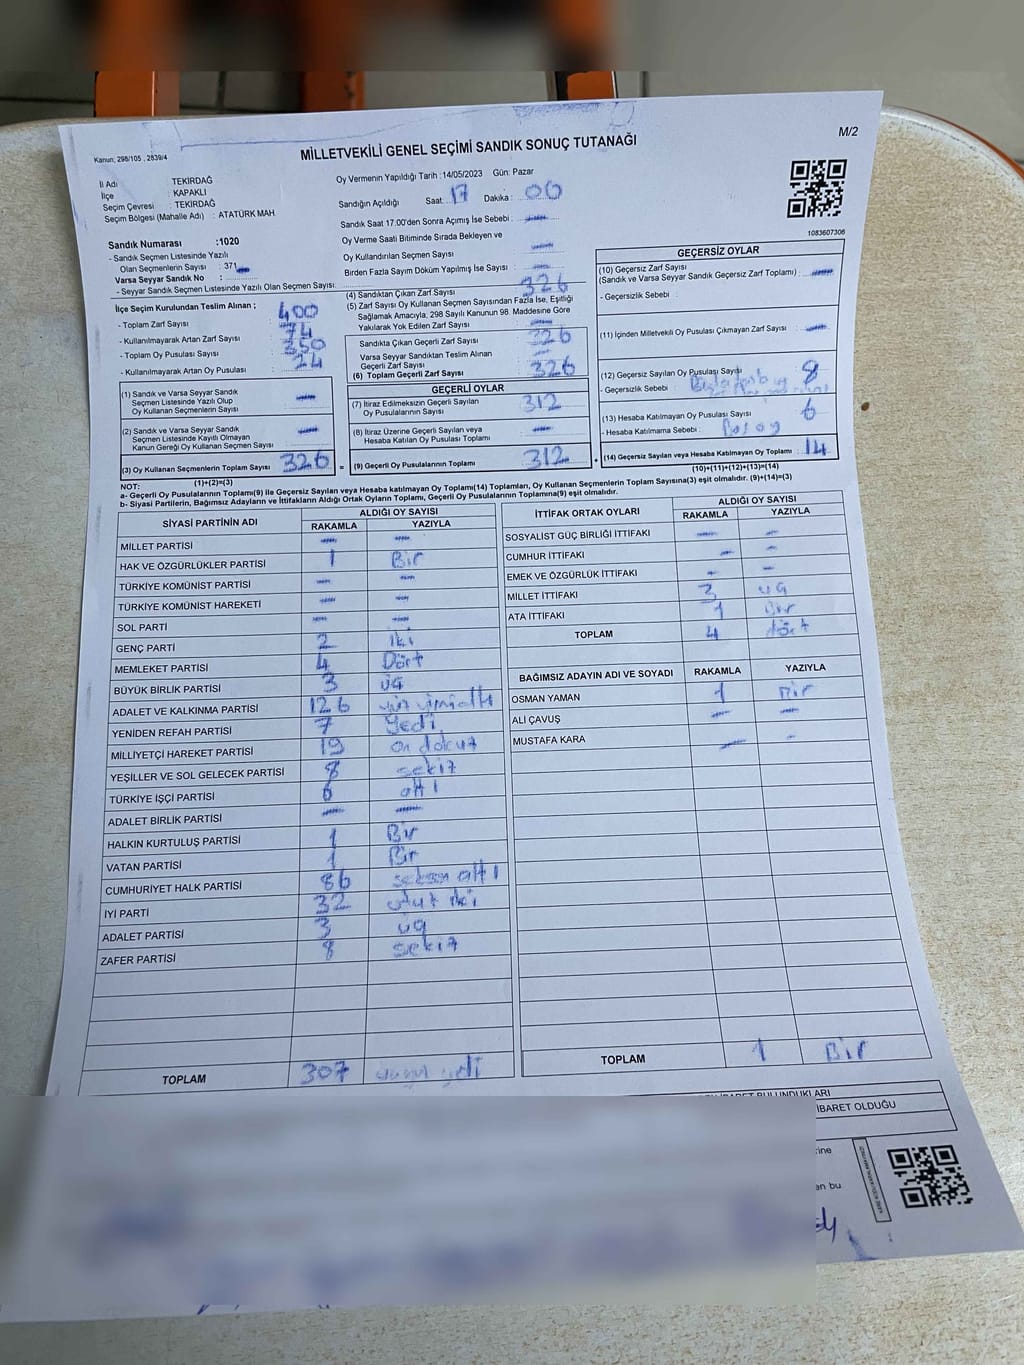 M/2
Kanun; 298/105 , 2839/4
MİLLETVEKİLİ GENEL SEÇİMİ SANDIK SONUÇ TUTANAĞI
İl Adı TEKİRDAĞ
İlçe : KAPAKLI
Seçim Çevresi : TEKİRDAĞ
Seçim Bölgesi (Mahalle Adı) : ATATÜRK MAH
Oy Vermenin Yapıldığı Tarih :14/05/2023 Gün: Pazar
Sandığın Açıldığı Saat : 17 Dakika : 00
Sandık Saat 17:00'den Sonra Açımış İse Sebebi :
Oy Verme Saati Bitiminde Sırada Bekleyen ve
Oy Kullandırılan Seçmen Sayısı
Birden Fazla Sayım Döküm Yapılmış İse Sayısı :
1083607306
Sandık Numarası :1020
- Sandık Seçmen Listesinde Yazılı
Olan Seçmenlerin Sayısı : 371
Varsa Seyyar Sandık No :
- Seyyar Sandık Seçmen Listesinde Yazılı Olan Seçmen Sayısı:
İlçe Seçim Kurulundan Teslim Alınan ;
- Toplam Zarf Sayısı 400
- Kullanılmayarak Artan Zarf Sayısı 74
- Toplam Oy Pusulası Sayısı 350
- Kullanılmayarak Artan Oy Pusulası 24
(1) Sandık ve Varsa Seyyar Sandık
Seçmen Listesinde Yazılı Olup
Oy Kullanan Seçmenlerin Sayısı
(2) Sandık ve Varsa Seyyar Sandık
Seçmen Listesinde Kayıtlı Olmayan
Kanun Gereği Oy Kullanan Seçmen Sayısı
(3) Oy Kullanan Seçmenlerin Toplam Sayısı 326
(1)+(2)=(3)
(4) Sandıktan Çıkan Zarf Sayısı 326
(5) Zarf Sayısı Oy Kullanan Seçmen Sayısından Fazla İse, Eşitliği
Sağlamak Amacıyla, 298 Sayılı Kanunun 98. Maddesine Göre
Yakılarak Yok Edilen Zarf Sayısı
Sandıkta Çıkan Geçerli Zarf Sayısı 326
Varsa Seyyar Sandıktan Teslim Alınan
Geçerli Zarf Sayısı
(6) Toplam Geçerli Zarf Sayısı 326
GEÇERLİ OYLAR
(7) İtiraz Edilmeksizin Geçerli Sayılan
Oy Pusulalarının Sayısı 312
(8) İtiraz Üzerine Geçerli Sayılan veya
Hesaba Katılan Oy Pusulası Toplamı
= (9) Geçerli Oy Pusulalarının Toplamı 312
GEÇERSİZ OYLAR
(10) Geçersiz Zarf Sayısı
(Sandık ve Varsa Seyyar Sandık Geçersiz Zarf Toplamı) :
- Geçersizlik Sebebi :
(11) İçinden Milletvekili Oy Pusulası Çıkmayan Zarf Sayısı :
(12) Geçersiz Sayılan Oy Pusulası Sayısı 8
- Geçersizlik Sebebi :
(13) Hesaba Katılmayan Oy Pusulası Sayısı 6
- Hesaba Katılmama Sebebi :
+ (14) Geçersiz Sayılan veya Hesaba Katılmayan Oy Toplamı : 14
(10)+(11)+(12)+(13)=(14)
NOT:
a- Geçerli Oy Pusulalarının Toplamı(9) ile Geçersiz Sayılan veya Hesaba katılmayan Oy Toplamı(14) Toplamları, Oy Kullanan Seçmenlerin Toplam Sayısına(3) eşit olmalıdır. (9)+(14)=(3)
b- Siyasi Partilerin, Bağımsız Adayların ve İttifakların Aldığı Ortak Oyların Toplamı, Geçerli Oy Pusulalarının Toplamına(9) eşit olmalıdır.
SİYASİ PARTİNİN ADI ALDIĞI OY SAYISI
RAKAMLA YAZIYLA
MİLLET PARTİSİ
HAK VE ÖZGÜRLÜKLER PARTİSİ 1 Bir
TÜRKİYE KOMÜNİST PARTİSİ
TÜRKİYE KOMÜNİST HAREKETİ
SOL PARTİ
GENÇ PARTİ 2 iki
MEMLEKET PARTİSİ 4 Dört
BÜYÜK BİRLİK PARTİSİ 3 üç
ADALET VE KALKINMA PARTİSİ 126 yüz yirmi altı
YENİDEN REFAH PARTİSİ 7 Yedi
MİLLİYETÇİ HAREKET PARTİSİ 19 on dokuz
YEŞİLLER VE SOL GELECEK PARTİSİ 8 sekiz
TÜRKİYE İŞÇİ PARTİSİ 6 altı
ADALET BİRLİK PARTİSİ
HALKIN KURTULUŞ PARTİSİ 1 Bir
VATAN PARTİSİ 1 Bir
CUMHURİYET HALK PARTİSİ 86 seksen altı
İYİ PARTİ 32 otuz iki
ADALET PARTİSİ 3 üç
ZAFER PARTİSİ 8 sekiz
TOPLAM 307 yedi
İTTİFAK ORTAK OYLARI ALDIĞI OY SAYISI
RAKAMLA YAZIYLA
SOSYALİST GÜÇ BİRLİĞİ İTTİFAKI
CUMHUR İTTİFAKI
EMEK VE ÖZGÜRLÜK İTTİFAKI
MİLLET İTTİFAKI 3 üç
ATA İTTİFAKI 1 Bir
TOPLAM 4 dört
BAĞIMSIZ ADAYIN ADI VE SOYADI RAKAMLA YAZIYLA
OSMAN YAMAN 1 Bir
ALİ ÇAVUŞ
MUSTAFA KARA
TOPLAM 1 Bir
İBARET BULUNDUKLARI
İBARET OLDUĞU
rine
en bu